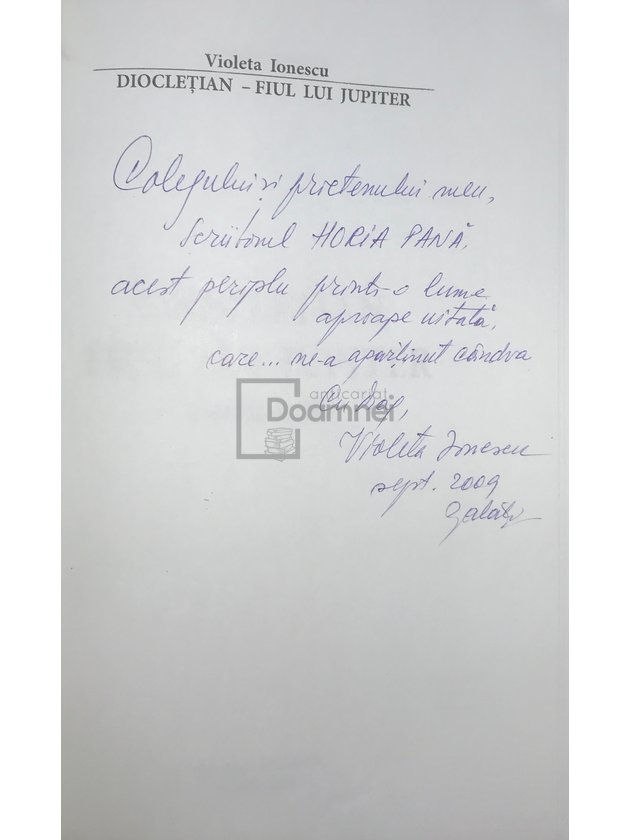 Violeta Ionescu
DIOCLEȚIAN – FIUL LUI JUPITER
Colegului și prietenului meu,
scriitorul HORIA PANĂ,
acest periplu printr-o lume
aproape uitată,
care... ne-a aparținut cândva
anticariat
Doamnei
Cu drag,
Violeta Ionescu
sept. 2009
Galați